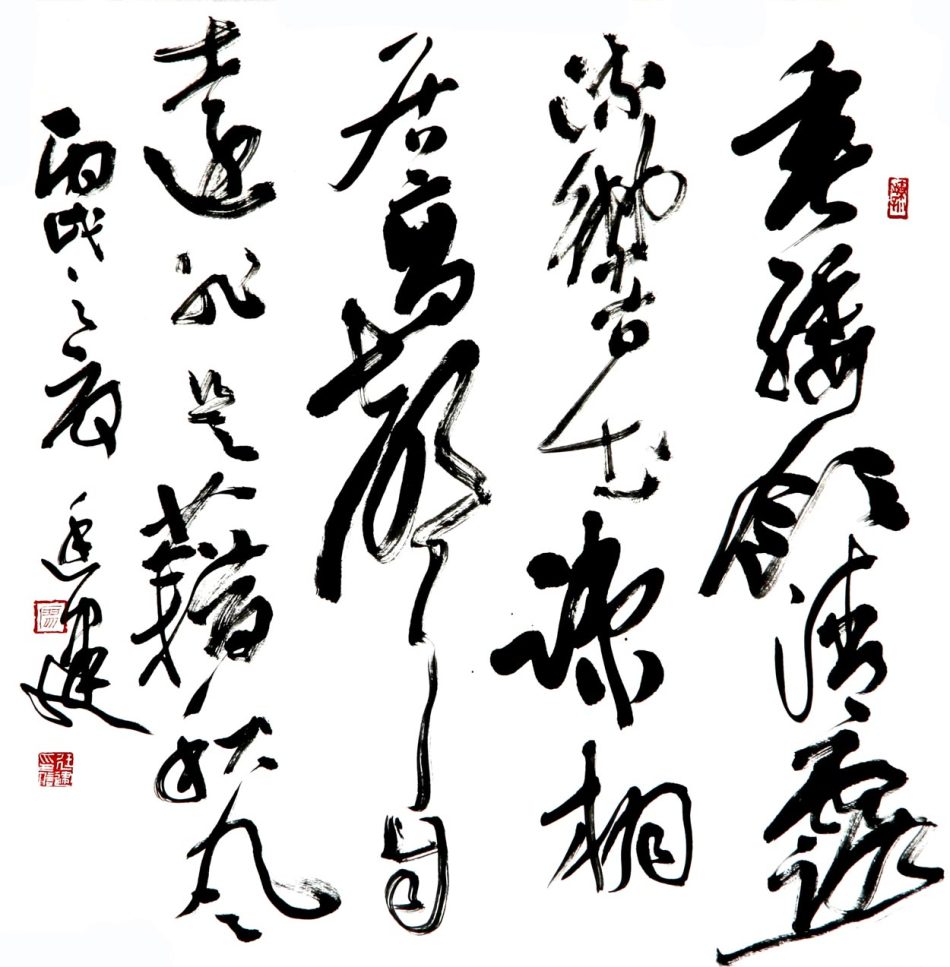 垂緌飲清露
流響出疎桐
居高聲自
遠非是藉秋風
丙戌之夏 建